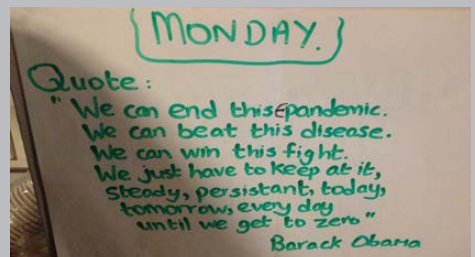 {MONDAY.}
Quote:
"We can end this Epandemic.
We can beat this disease.
We can win this fight.
We just have to keep at it,
steady, persistant, today,
tomorrow, every day
until we get to zero"
Barack Obama